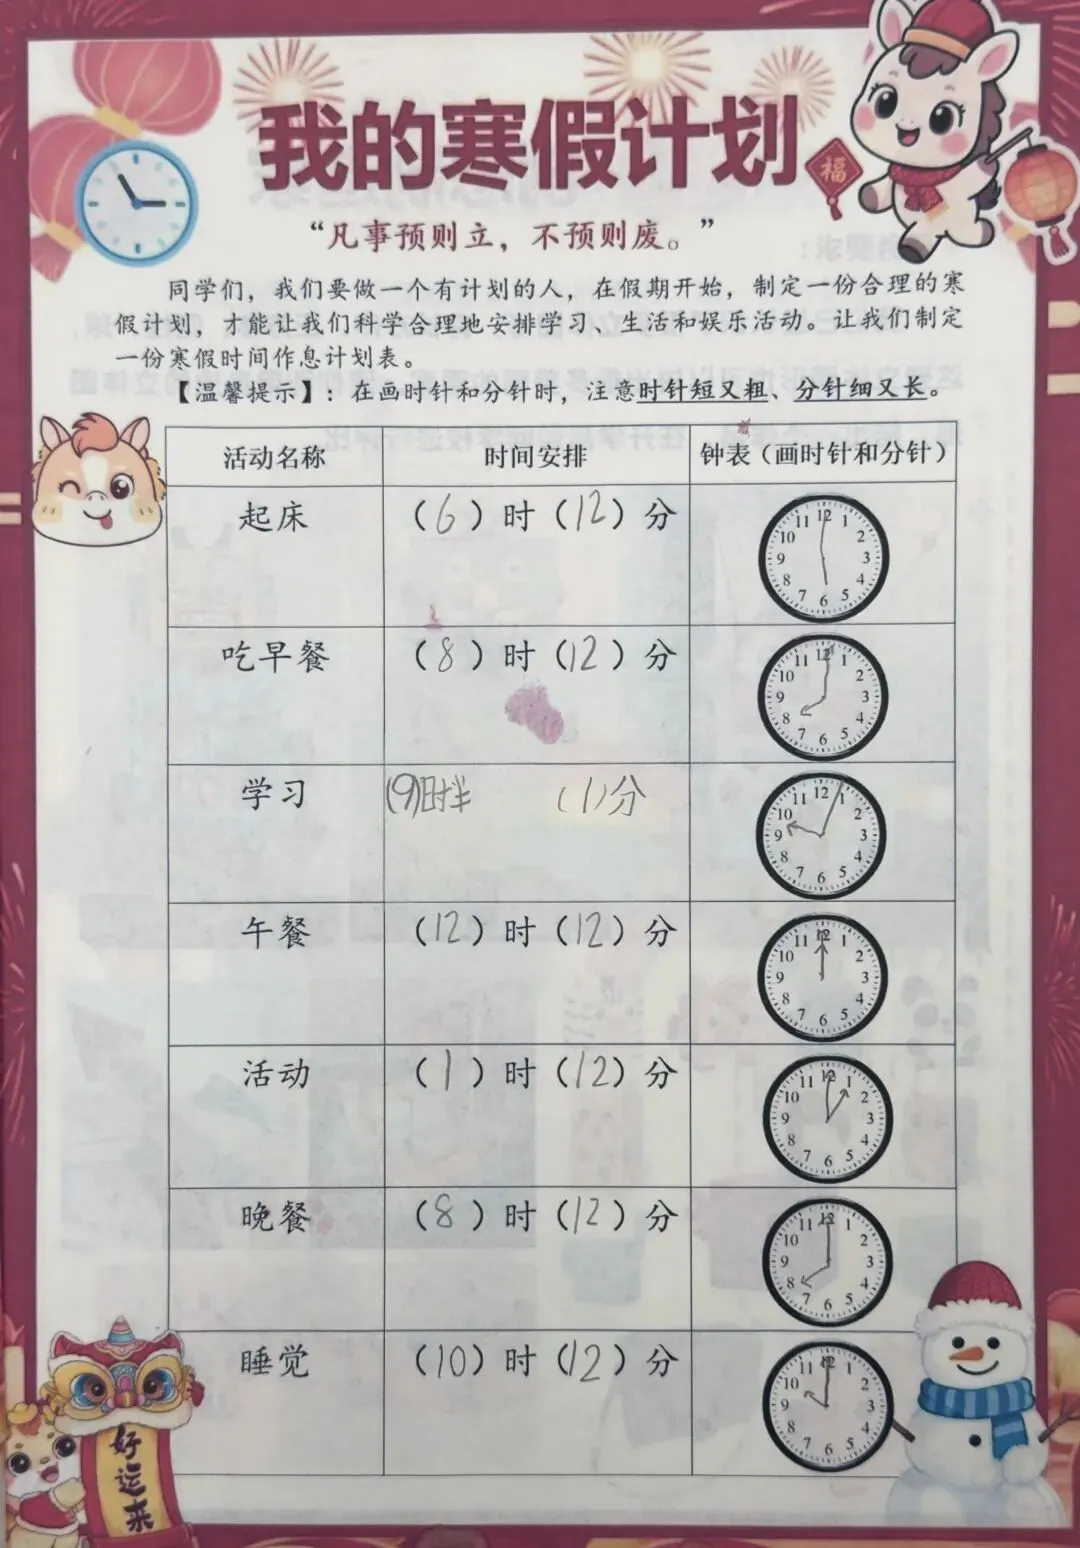 我的寒假计划
福
“凡事预则立，不预则废。”
同学们，我们要做一个有计划的人，在假期开始，制定一份合理的寒
假计划，才能让我们科学合理地安排学习、生活和娱乐活动。让我们制定
一份寒假时间作息计划表。
【温馨提示】：在画时针和分针时，注意时针短又粗、分针细又长。
活动名称 时间安排 钟表（画时针和分针）
起床 （6）时（12）分
12 1 2 3 4 5 6 7 8 9 10 11
吃早餐 （8）时（12）分
12 1 2 3 4 5 6 7 8 9 10 11
学习 (9)时半 (1)分
12 1 2 3 4 5 6 7 8 9 10 11
午餐 （12）时（12）分
12 1 2 3 4 5 6 7 8 9 10 11
活动 （1）时（12）分
12 1 2 3 4 5 6 7 8 9 10 11
晚餐 （8）时（12）分
12 1 2 3 4 5 6 7 8 9 10 11
睡觉 （10）时（12）分
12 1 2 3 4 5 6 7 8 9 10 11
好运来